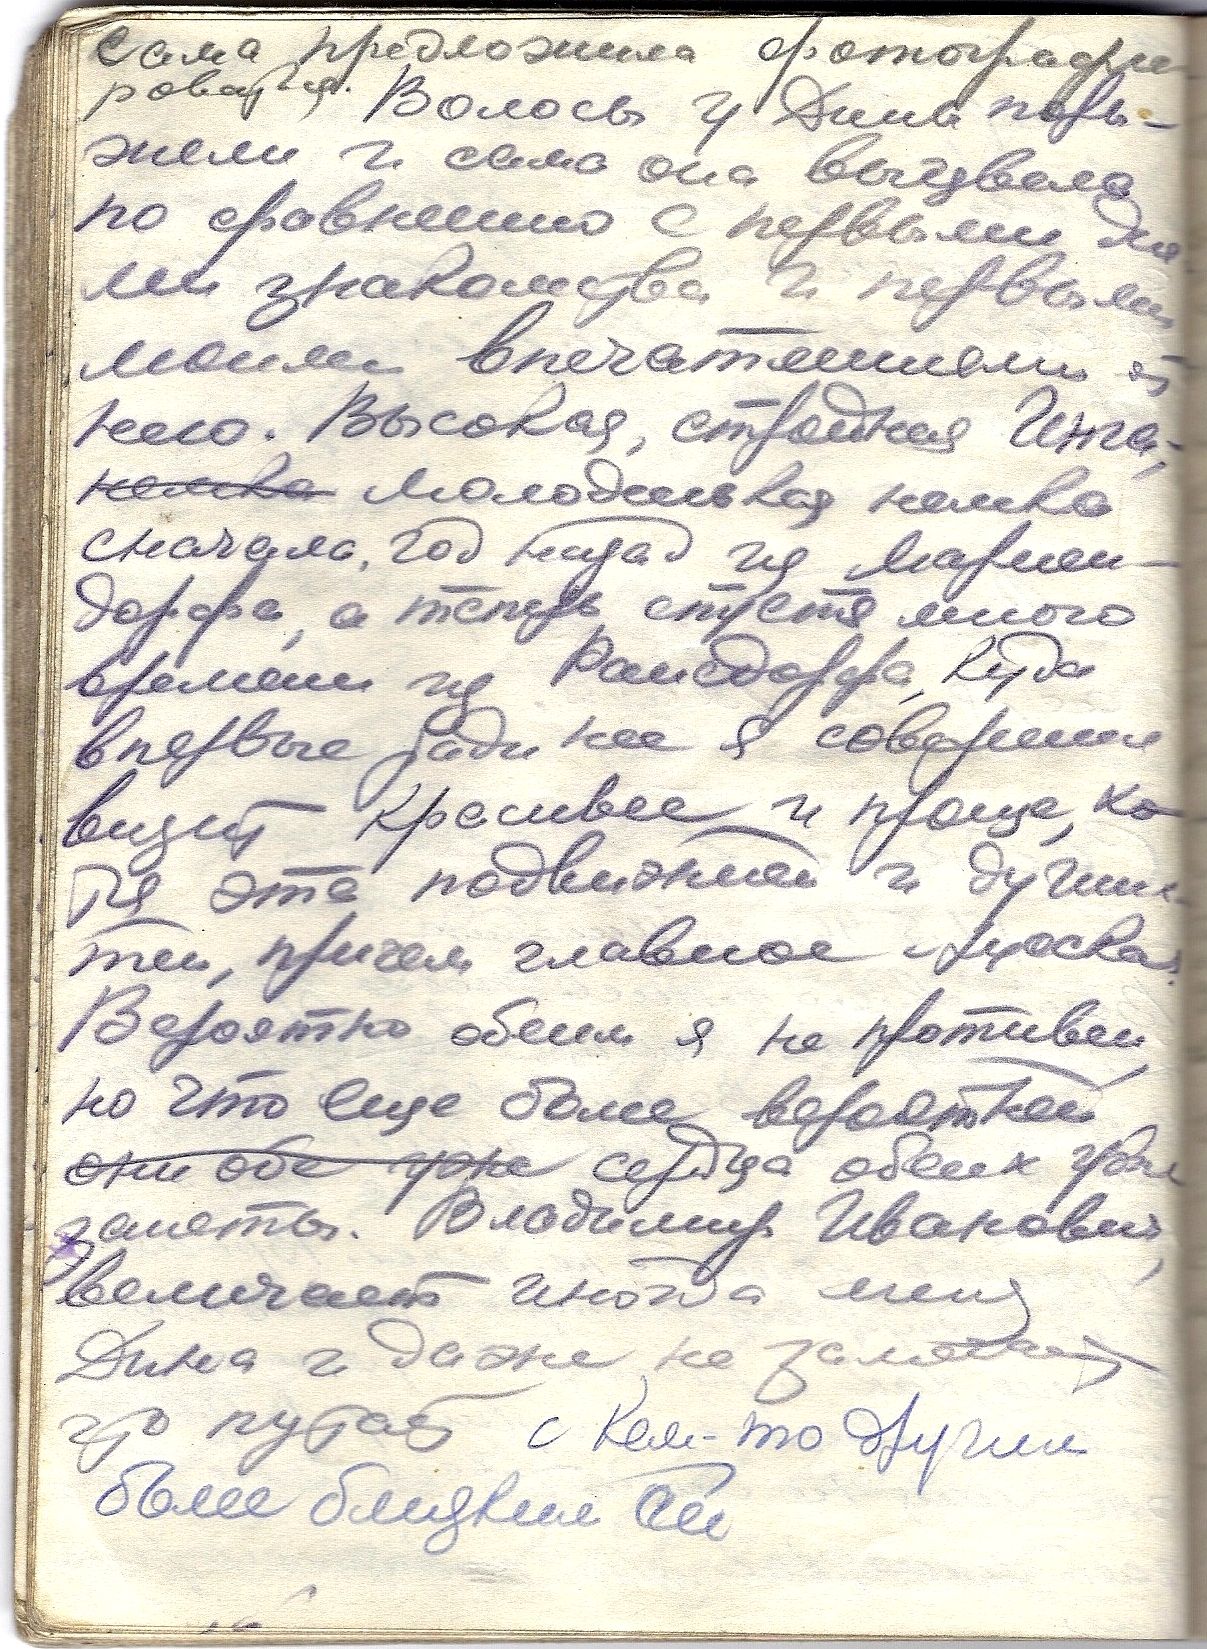 сама предложила фотографи
роваться. Волосы у Дины поры-
жели и сама она выцвела
по сравнению с первыми дня
ми знакомства и первыми
моими впечатлениями от
нею. Высокая, стройная Инга,
немка молоденькая немка
сначала, год назад из Мариен-
дорфа, а теперь, спустя много
времени из Рансдорфа, куда
впервые ради нее я совершил
визит красивее и проще, хо
тя эта подвижней и
тей, причем главное
Вероятно обеим я не противен,
но что еще более вероятней
они обе уже сердца обеих уже
заняты. Владимир Иванович,
величает иногда меня
Дина и даже не замечает
что путает с кем-то другим
более близким ей